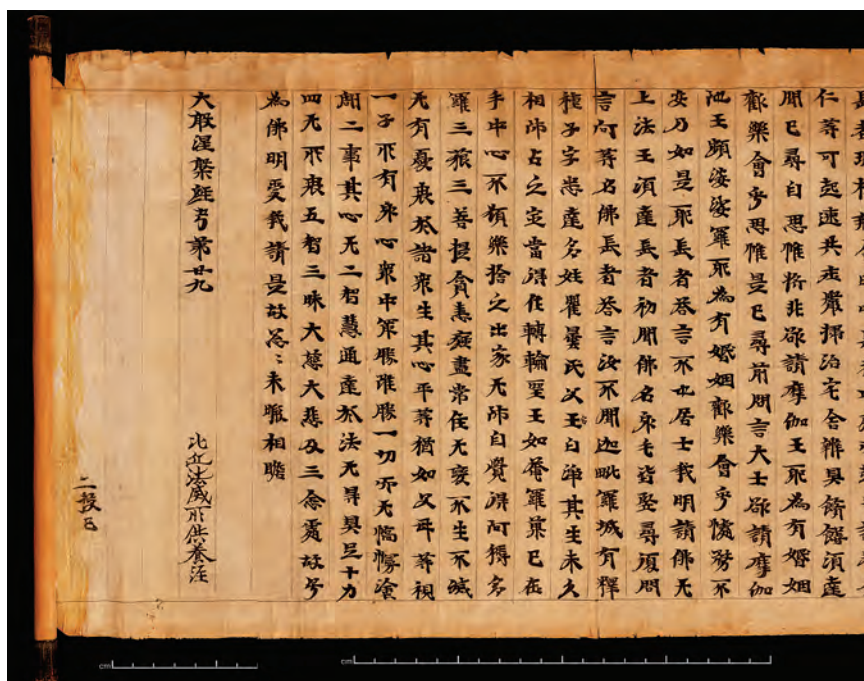 仁等可起速共莊嚴掃治宅舍辦具餚饍須達
聞已尋自思惟將非欲請摩伽王耶為有婚姻
歡樂會乎思惟是已尋前問言大士欲請摩伽
陁王頻婆娑羅耶為有婚姻歡樂會乎懅務不
安乃如是耶長者答言不也居士我明請佛无
上法王須達長者初聞佛名身毛皆竪尋復問
言何等名佛長者答言汝不聞迦毗羅城有釋
種子字悉達名姓瞿曇氏父王白淨其生未久
相師占之定當得作轉輪聖王如菴羅菓已在
手中心不願樂捨之出家无師自覺得阿耨多
羅三藐三菩提貪恚癡盡常住无變不生不滅
无有憂畏於諸衆生其心平等猶如父母等視
一子所有身心衆中第勝雖勝一切而无憍慢塗
割二事其心无二智慧通達於法无㝵具足十力
四无所畏五智三昧大慈大悲及三念處故号
為佛明受我請是故忩〻未暇相瞻
大般涅槃經卷第廿九
比丘法威所供養經
二校已
cm
cm